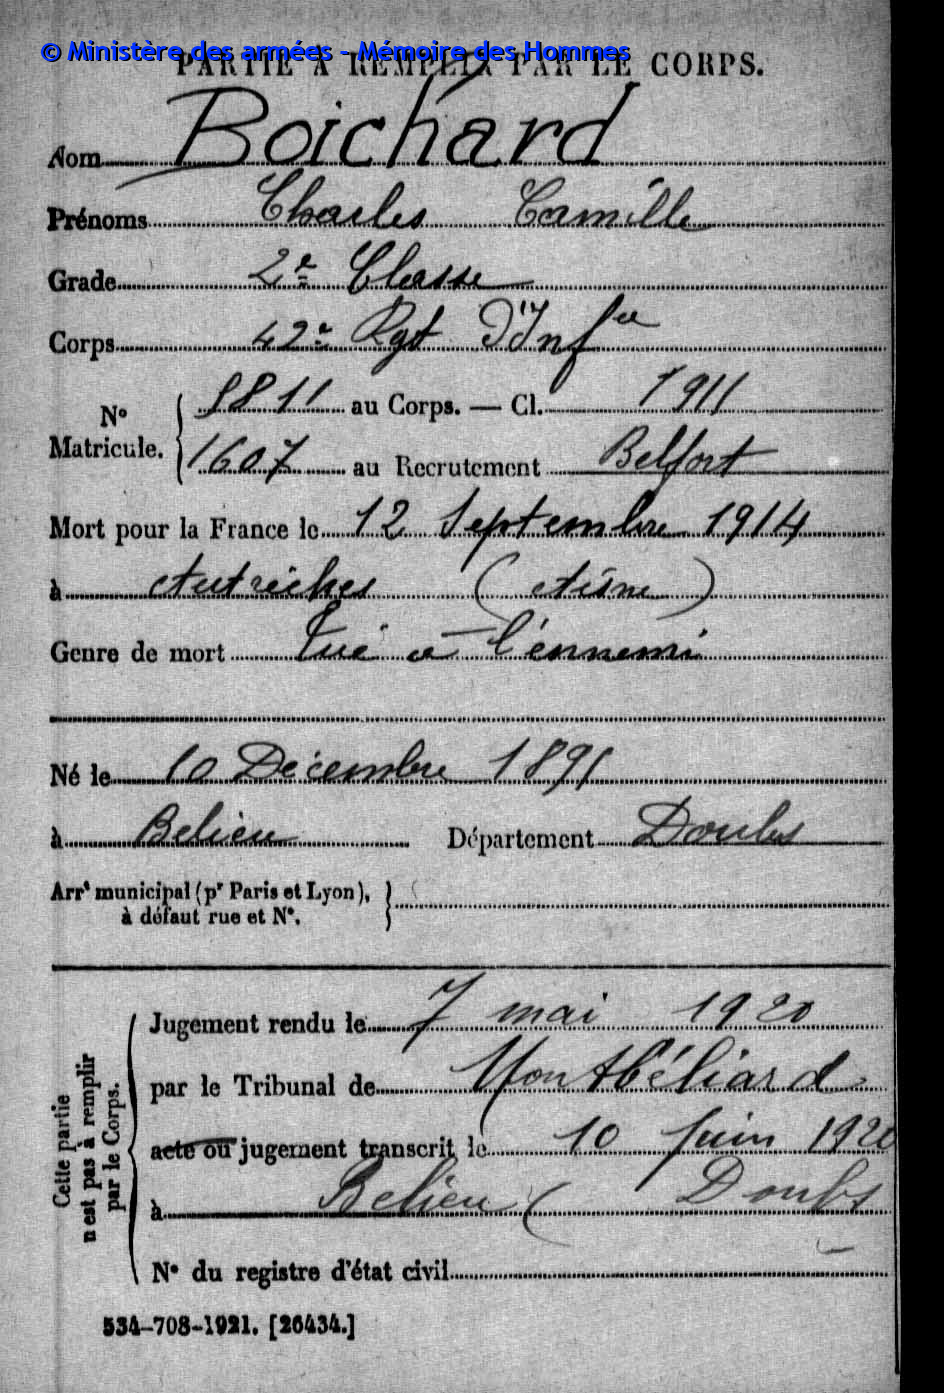 © Ministère des armées - Mémoire des Hommes
PARTIE À REMPLIR PAR LE CORPS.
Nom Boichard
Prénoms Charles Camille
Grade 2e Classe
Corps 42e Rgt D'Infie
N° Matricule. 8811 au Corps. — Cl. 1911
1607 au Recrutement Belfort
Mort pour la France le 12 Septembre 1914
à Autrèches (Aisne)
Genre de mort Tué à l'ennemi
Né le 10 Décembre 1891
à Belieu Département Doubs
Arrt municipal (pr Paris et Lyon),
à défaut rue et N°.
Cette partie
n'est pas à remplir
par le Corps.
Jugement rendu le 7 mai 1920
par le Tribunal de Montbéliard
acte ou jugement transcrit le 10 juin 1920
à Belieu (Doubs
N° du registre d'état civil
534-708-1921. [26434.]